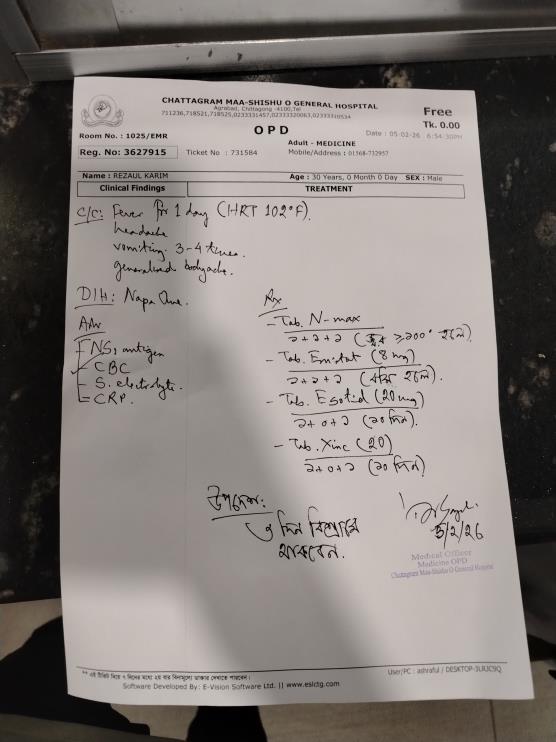 CHATTAGRAM MAA-SHISHU O GENERAL HOSPITAL
Agrabad, Chittagong -4100,Tel
711236,718521,718525,0233331457,02333320063,02333310534
Free
Tk. 0.00
OPD
Date : 05-02-26 6:54:30PM
Room No. : 1025/EMR
Adult - MEDICINE
Reg. No: 3627915 Ticket No : 731584 Mobile/Address : 01568-732957
Name : REZAUL KARIM Age : 30 Years, 0 Month 0 Day SEX : Male
Clinical Findings TREATMENT
C/C: Fever for 1 day (HRT 102°F).
headache
vomiting 3-4 times.
generalised bodyache.
D/H: Napa One.
Adv
- NS1 antigen
- CBC
- S. electrolyte.
- CRP.
Rx
- Tab. N-max
১+১+১ (জ্বর ≥১০০° হলে).
- Tab. Emistat (8 mg)
১+১+১ (বমি হলে).
- Tab. Esotid (20 mg)
১+০+১ (১০ দিন).
- Tab. Xinc (20)
১+০+১ (১০ দিন)
উপদেশ:
৩ দিন বিশ্রামে
থাকবেন.
5/2/26
Medical Officer
Medicine OPD
Chattagram Maa-Shishu O General Hospital
** এই টিকিট দিয়ে ৭ দিনের মধ্যে ২য় বার বিনামূল্যে ডাক্তার দেখাতে পারবেন।
User/PC : ashraful / DESKTOP-3LRJC9Q
Software Developed By: E-Vision Software Ltd. || www.eslctg.com